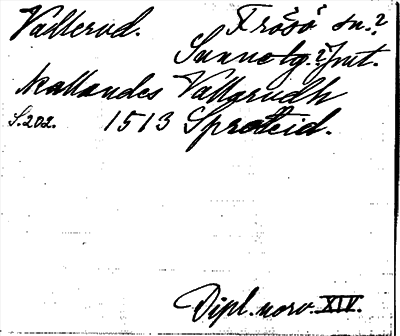 Vallerud. Frösö sn.?
Sunne tg.? Jmt.
kallandes Vallarudh
S. 202. 1513 Sproteid.
Dipl. norv. XIV.